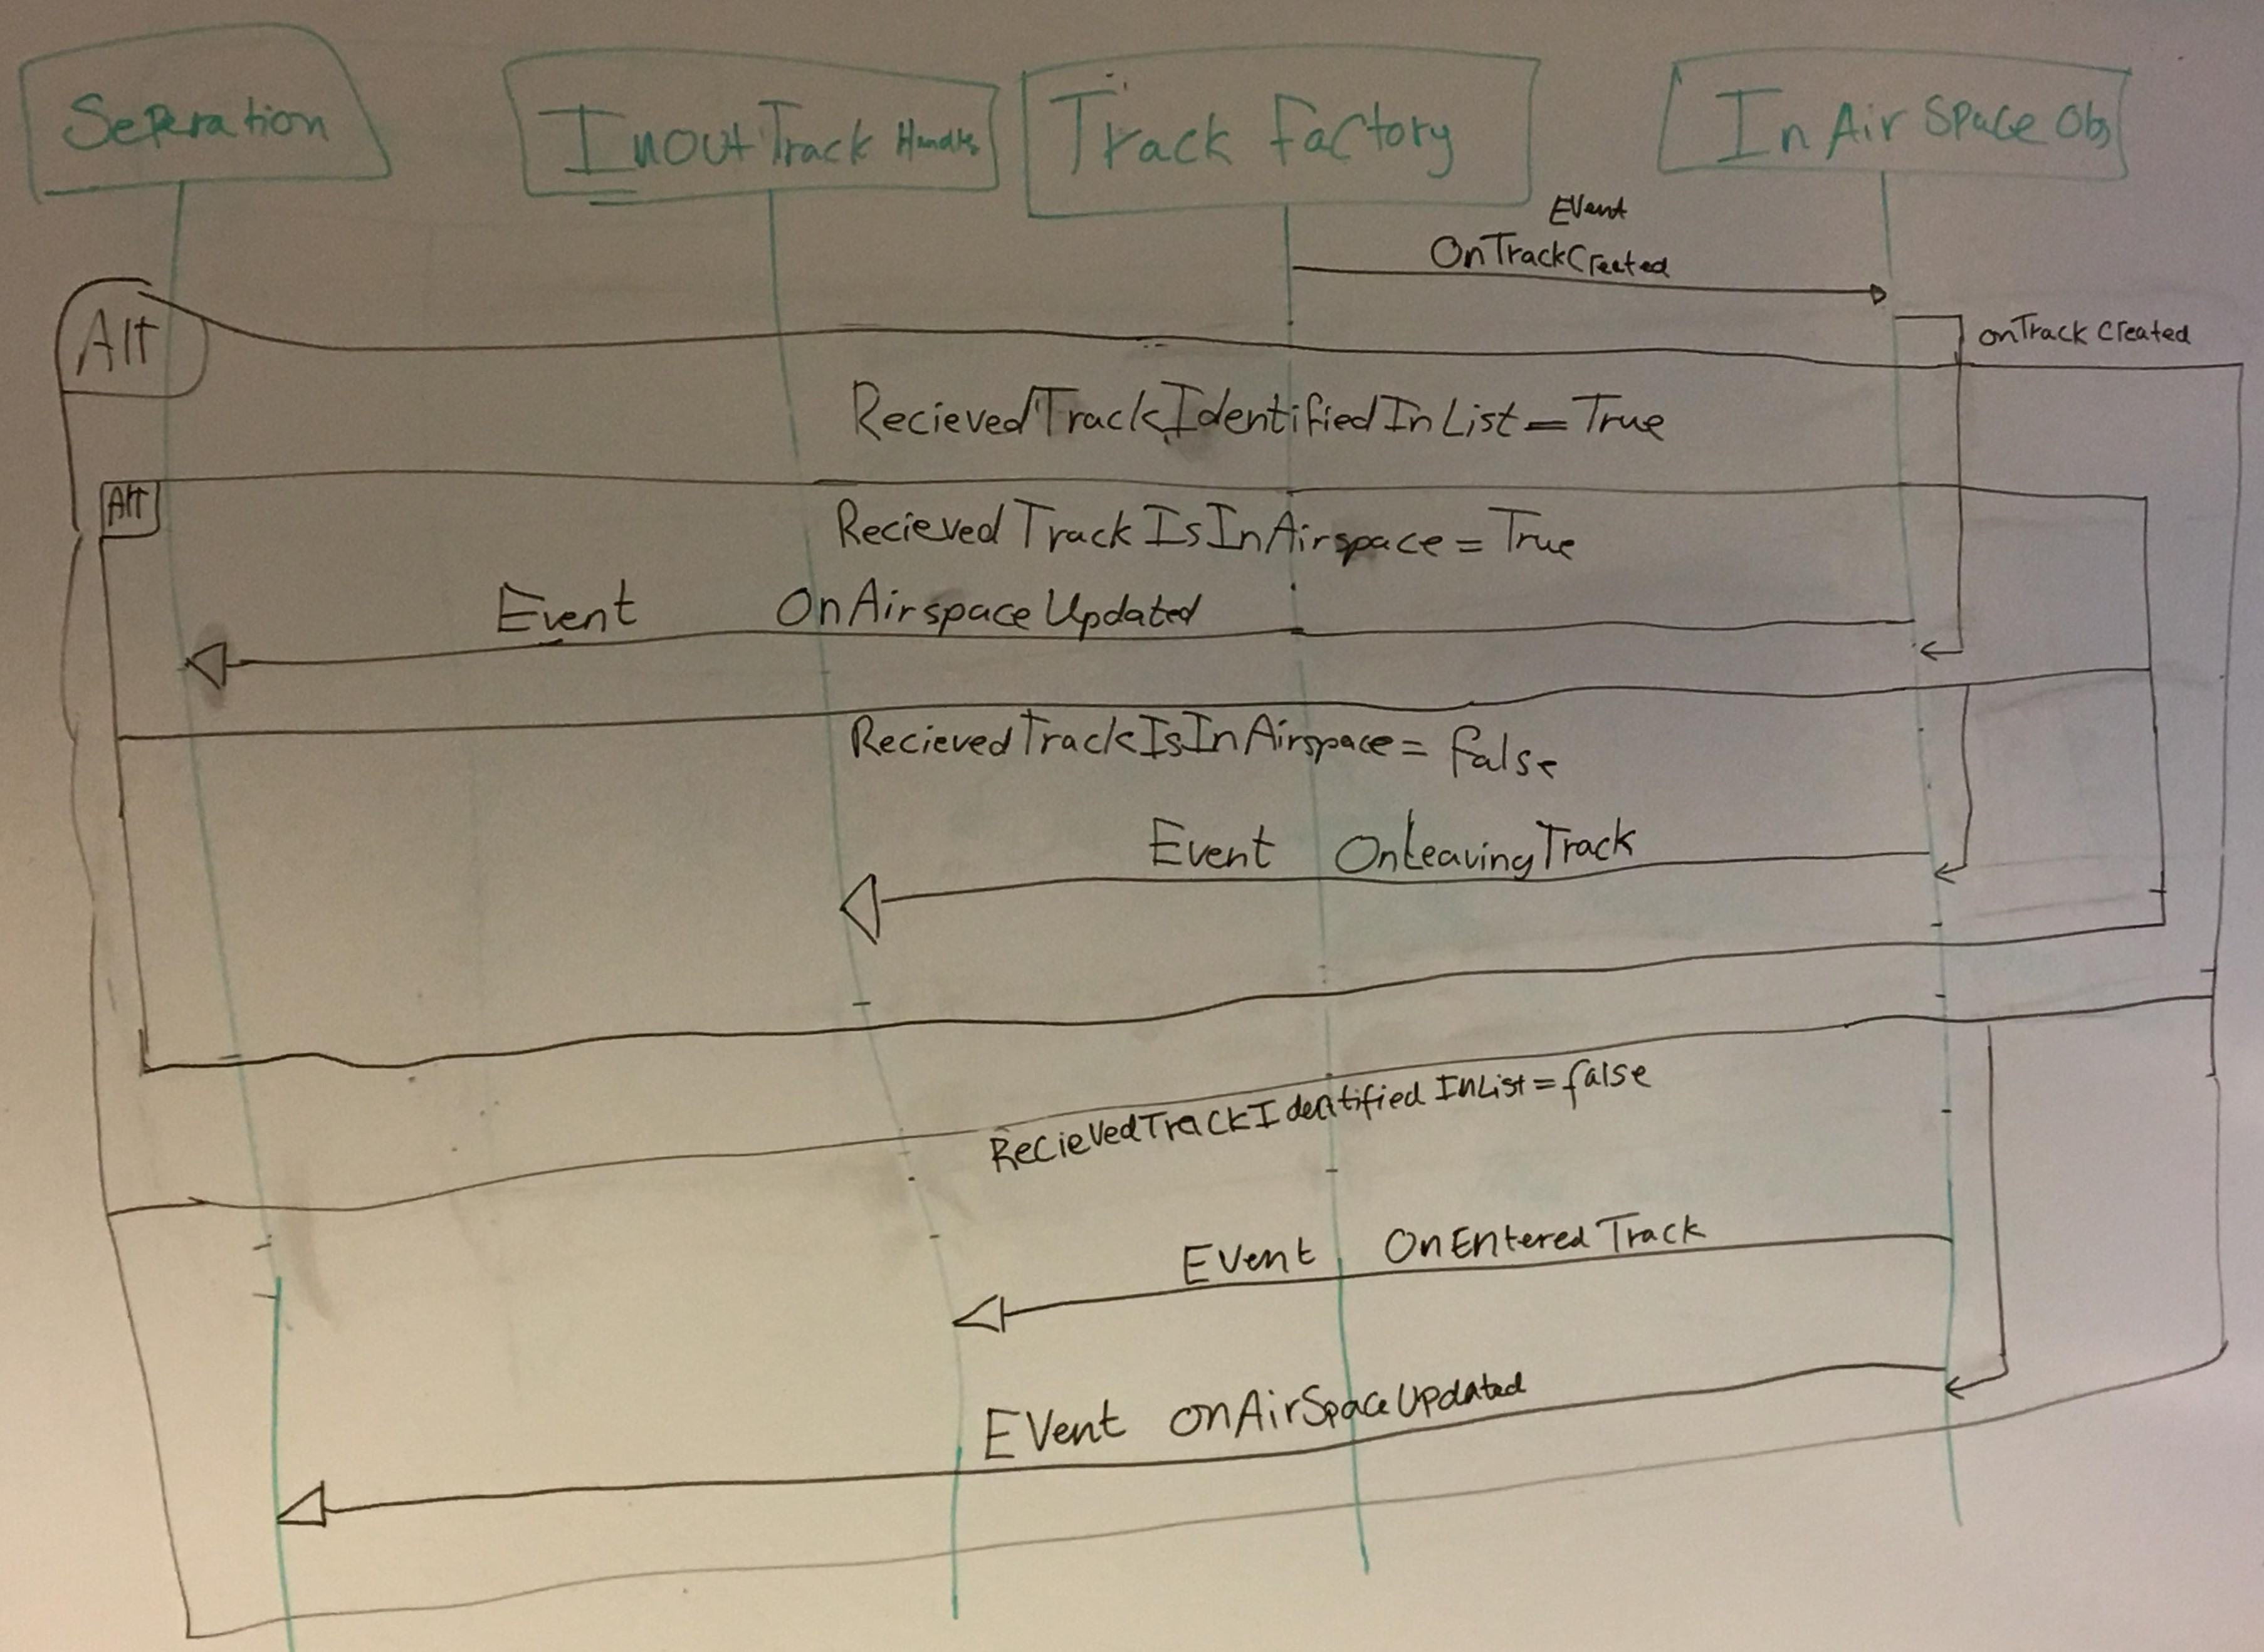 Seperation
InOutTrack Handler
Track Factory
InAirSpaceObs
Event
OnTrackCreated
onTrackCreated
Alt
RecievedTrackIdentifiedInList=True
Alt
RecievedTrackIsInAirspace=True
Event OnAirspaceUpdated
RecievedTrackIsInAirspace=false
Event OnLeavingTrack
RecievedTrackIdentifiedInList=false
Event OnEnteredTrack
Event onAirSpaceUpdated